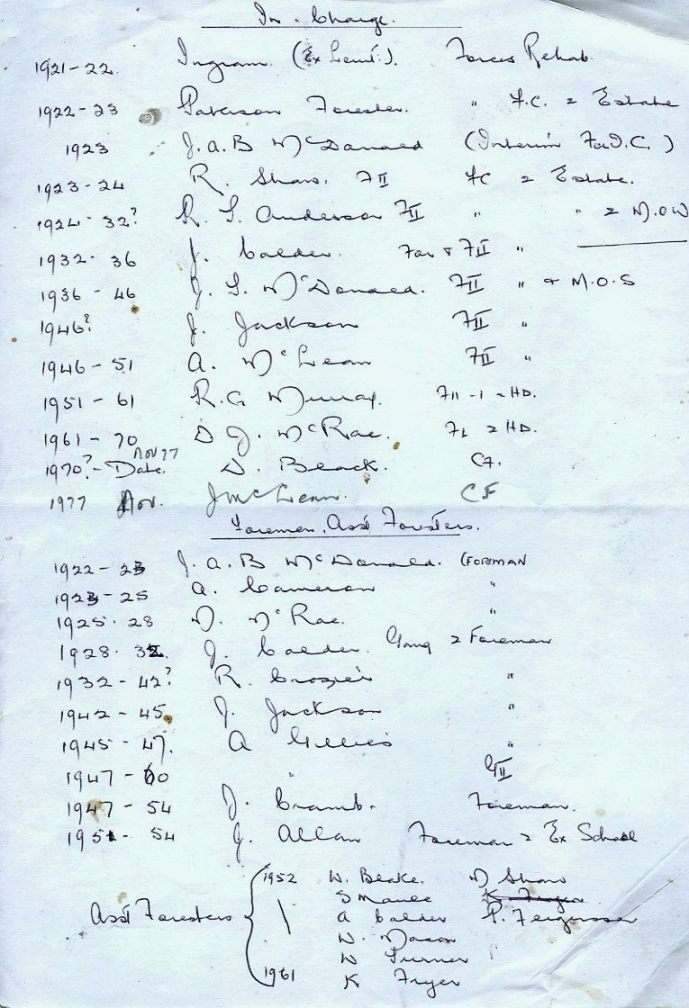 In Charge.
1921-22. Ingram (Ex Lieut.). Forces Rehab.
1922-23 Paterson Forester. " F.C. & Estate
1923 J.A.B McDonald (Interim For I.C.)
1923-24 R. Shaw. FII FC & Estate.
1924-32? R. S. Anderson FII " " & M.O.W
1932-36 J. Calder. For & FII "
1936-46 J. S. McDonald. FII " & M.O.S
1946? J. Jackson FII "
1946-51 A. McLean FII "
1951-61 R.G Murray. FII-I & HD.
1961-70 D J. McRae. FI & HD.
1970?- Date. Nov 77 D. Black. CF.
1977 Nov. J McLean. CF
Foremen, Asst Foresters.
1922-23 J.A.B McDonald. (FORMAN
1923-25 A. Cameron "
1925-28 D. McRae. "
1928-32. J. Calder. Gang & Foreman
1932-42? R. Crozier "
1942-45. J. Jackson "
1945-47. A Gillies "
1947-60 " GII
1947-54 J. Cramb. Foreman.
1951-54 J. Allan Foreman & Ex School
1952 W. Blake. D Shaw
S K Fryer
Asst Foresters A Calder P. Fergusson
W. Mason
W Turner
1961 K Fryer